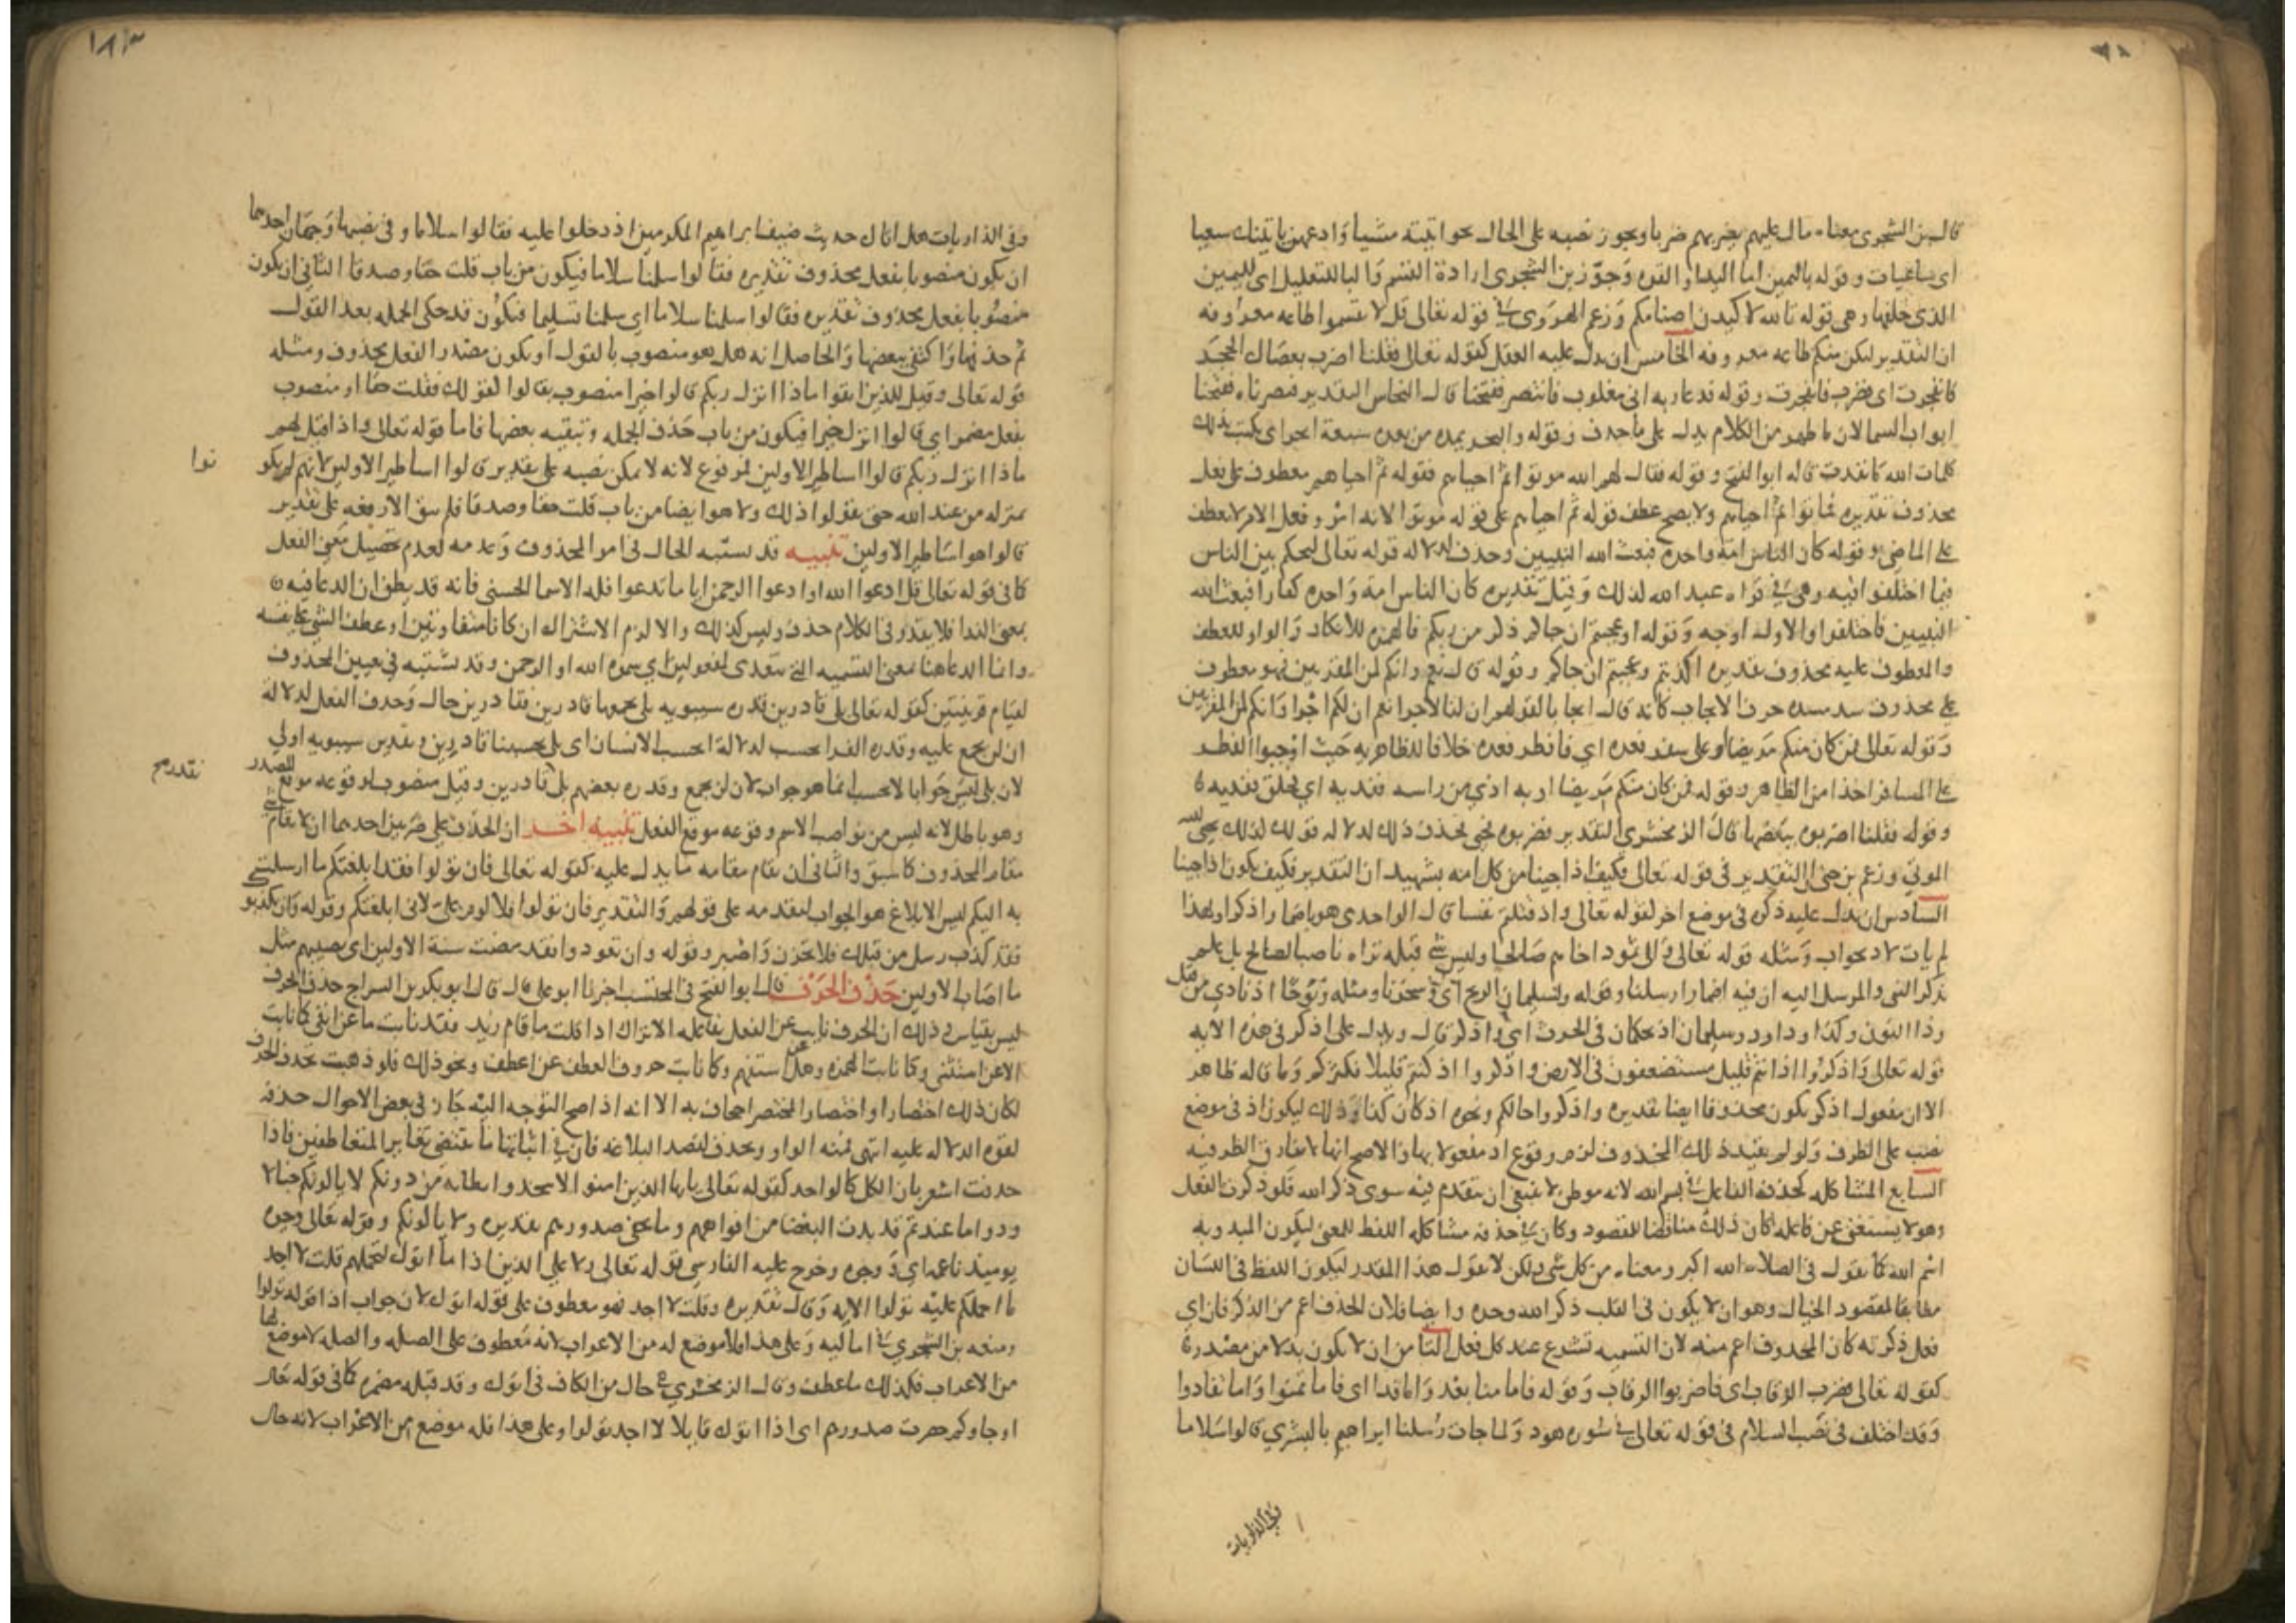 قال بن الشجري معناه مال عليهم يضربهم ضربا ويجوز نصبه على الحال نحو اتيته مشيا وادعهن ياتينك سعيا
اي ساعيات وقوله باليمين اما اليد او القوة وجوز بن الشجري ارادة القسم والبا للتعليل اي لليمين
الذي حلفها وهي قوله تالله لاكيدن اصنامكم وزعم الهروي في قوله تعالى قل لا تقسموا طاعه معروفه
ان التقدير ليكن منكم طاعه معروفه الخامس ان يدل عليه العقل كقوله تعالى فقلنا اضرب بعصاك الحجر
فانفجرت اي فضرب فانفجرت وقوله فدعا ربه اني مغلوب فانتصر ففتحنا قال النحاس التقدير فنصرناه ففتحنا
ابواب السما لان ما ظهر من الكلام يدل على ما حذف وقوله والبحر يمده من بعده سبعة ابحر اي يكتب بذلك
كلمات الله ما نفدت قاله ابو الفتح وقوله فقال لهم الله موتوا ثم احياهم فقوله ثم احياهم معطوف على فعل
محذوف تقديره فماتوا ثم احياهم ولا يصح عطف قوله ثم احياهم على قوله موتوا لانه امر وفعل الامر لا يعطف
على الماضي وقوله كان الناس امة واحدة فبعث الله النبيين وحذف لدلالة قوله تعالى ليحكم بين الناس
فيما اختلفوا فيه وهي في قراه عبد الله لذلك وقيل تقديره كان الناس امة واحدة كفارا فبعث الله
النبيين فاختلفوا والاول اوجه وقوله اوعجبتم ان جاكم ذكر من ربكم فالهمزه للانكار والواو للعطف
والمعطوف عليه محذوف تقديره اكذبتم وعجبتم ان جاكم وقوله قال نعم وانكم لمن المقربين فهو معطوف
على محذوف سد مسده حرف الايجاب كانه قال ايجابا لقولهم ان لنا لاجرا نعم ان لكم اجرا وانكم لمن المقربين
وقوله تعالى فمن كان منكم مريضا او على سفر فعدة اي فافطر فعدة خلافا للظاهرية حيث اوجبوا الفطر
على المسافر اخذا من الظاهر وقوله فمن كان منكم مريضا او به اذي من راسه ففدية اي فحلق ففدية
وقوله فقلنا اضربوه ببعضها قال الزمخشري التقدير فضربوه فحيي فحذف ذلك لدلالة قوله كذلك يحي الله
الموتي وزعم بن جني ان التقدير في قوله تعالى فكيف اذا جينا من كل امة بشهيد ان التقدير فكيف يكون اذا جينا
السادس ان يدل عليه ذكره في موضع اخر كقوله تعالى واذ قتلتم نفسا قال الواحدي هو باضمار اذكر ولهذا
لم يات لاذ بجواب ومثله قوله تعالى والى ثمود اخاهم صالحا وليس شي قبله تراه ناصبا لصالح بل علم
بذكر النبي والمرسل اليه ان فيه اضمار ارسلنا وقوله ولسليمان الريح اي وسخرنا ومثله ونوحا اذ نادي من قبل
وذا النون وكذا وداود وسليمان اذ يحكمان في الحرث اي واذكر قال ويدل على اذكر في هذه الآية
قوله تعالى واذكروا اذ انتم قليل مستضعفون في الارض واذكروا اذ كنتم قليلا فكثركم وما قاله ظاهر
الا ان مفعول اذكر يكون محذوفا ايضا تقديره واذكروا حالكم ونحوه اذ كان كذا وذلك ليكون اذ في موضع
نصب على الظرف ولو لم يفيد ذلك المحذوف لزم وقوع اذ مفعولا بها والاصح انها لا تفارق الظرفيه
السابع المشاكله كحذف الفاعل في بسم الله لانه موطن لا ينبغي ان يتقدم فيه سوى ذكر الله فلو ذكرت الفعل
وهو لا يستغنى عن فاعله كان ذلك مناقضا للمقصود وكان في حذفه مشاكله اللفظ للمعنى ليكون المبدو به
اسم الله كما تقول في الصلاة الله اكبر ومعناه من كل شي ولكن لا تقول هذا المقدر ليكون اللفظ في اللسان
مطابقا لمقصود الخيال وهو ان لا يكون في القلب ذكر الا الله وحده وايضا فلان الحذف اعم من الذكر فان اي
فعل ذكرته كان المحذوف اعم منه لان التسميه تشرع عند كل فعل الثامن ان لا يكون بدلا من مصدره
كقوله تعالى فضرب الرقاب اي فاضربوا الرقاب وقوله فاما منا بعد واما فدا اي فاما تمنوا واما تفادوا
وقد اختلف في نصب السلام في قوله تعالى في سورة هود ولما جات رسلنا ابراهيم بالبشري قالوا سلاما
وفي الذاريات
١٨٣
وفي الذاريات هل اتاك حديث ضيف ابراهيم المكرمين اذ دخلوا عليه فقالوا سلاما وفي نصبها وجهان احدهما
ان يكون منصوبا بفعل محذوف تقديره فقالوا سلمنا سلاما فيكون من باب قلت حقا وصدقا الثاني ان يكون
منصوبا بفعل محذوف تقديره فقالوا سلمنا سلاما اي سلمنا تسليما فيكون قد حكى الجمله بعد القول
ثم حذفها واكتفى ببعضها والحاصل انه هل هو منصوب بالقول او بكون مصدرا لفعل محذوف ومثله
قوله تعالى وقيل للذين اتقوا ماذا انزل ربكم قالوا خيرا منصوب بقالوا كقولك قلت حقا او منصوب
بفعل مضمر اي قالوا انزل خيرا فيكون من باب حذف الجمله وتبقيه بعضها فاما قوله تعالى واذا قيل لهم
ماذا انزل ربكم قالوا اساطير الاولين لمرفوع لانه لا يمكن نصبه على تقدير قالوا اساطير الاولين لانهم لم يكو
نوا
بمنزله من عند الله حتى يقولوا ذلك ولا هو ايضا من باب قلت حقا وصدقا فلم يبق الا رفعه على تقدير
قالوا هو اساطير الاولين تنبيه قد يشتبه الحال في امر المحذوف وعدمه لعدم تحصيل معنى الفعل
كما في قوله تعالى قل ادعوا الله او ادعوا الرحمن ايا ما تدعوا فله الاسما الحسنى فانه قد يظن ان الدعا فيه
بمعنى الندا فلا يقدر في الكلام حذف وليس كذلك والا لزم الاشتراك ان كانا متفاوتين او عطف الشي على نفسه
وانما الدعا هنا بمعنى التسميه التي تتعدى لمفعولين اي سموه الله او الرحمن وقد يشتبه في تعيين المحذوف
لقيام قرينتين كقوله تعالى بلى قادرين قدره سيبويه بلى نجمعها قادرين فقادرين حال وحذف الفعل لدلالة
ان لن نجمع عليه وقدره الفرا نحسب لدلالة ايحسب الانسان اي بلى يحسبنا قادرين وتقدير سيبويه اولى
لان بلى ليس جوابا لايحسب انما هو جواب لان لن نجمع وقدره بعضهم بلى نقدر قادرين وقيل منصوب لوقوعه موقع المصدر
نقدرهم
وهو باطل لانه ليس من نواصب الاسم وقوعه موقع الفعل تنبيه اخر ان الحذف على ضربين احدهما ان لا يقام شي
مقام المحذوف كما سبق والثاني ان يقام مقامه ما يدل عليه كقوله تعالى فان تولوا فقد ابلغتكم ما ارسلت
به اليكم ليس الابلاغ هو الجواب لتقدمه على قولهم والتقدير فان تولوا فلا لوم علي لاني ابلغتكم وقوله وان يكذبو
فقد كذبت رسل من قبلك فلا تحزن واصبر وقوله وان يعودوا فقد مضت سنة الاولين اي يصيبهم مثل
ما اصاب الاولين حذف الحرف قال ابو الفتح في المحتسب اخبرنا ابو علي قال قال ابو بكر بن السراج حذف الحرف
ليس بقياس وذلك ان الحرف نايب عن الفعل بفاعله الا تراك اذا قلت ما قام زيد فقد نابت ما عن انفي كما نابت
الا عن استثني وكما نابت الهمزه وهل عن استفهم وكما نابت حروف العطف عن اعطف ونحو ذلك فلو ذهبت تحذف الحرف
لكان ذلك اختصارا واختصار المختصر اجحاف به الا انه اذا صح التوجه اليه جاز في بعض الاحوال حذفه
لقوه الدلاله عليه انتهى فمنه الواو وتحذف لقصد البلاغه فان في اثباتها ما يقتضي تغاير المتعاطفين فاذا
حذفت اشعر بان الكل كالواحد كقوله تعالى يايها الذين امنوا لا تتخذوا بطانه من دونكم لا يالونكم خبالا
ودوا ما عنتم قد بدت البغضا من افواههم وما تخفي صدورهم تقديره ولا يالونكم وقوله تعالى وجوه
يوميذ ناعمه اي ووجوه وخرج عليه الفارسي قوله تعالى ولا على الذين اذا ما اتوك لتحملهم قلت لا اجد
ما احملكم عليه تولوا الايه وقال تقديره وقلت لا اجد فهو معطوف على قوله اتوك لان جواب اذا قوله تولوا
ومنعه بن الشجري في اماليه وعلى هذا فلا موضع له من الاعراب لانه معطوف على الصله والصله لا موضع لها
من الاعراب فكذلك ما عطف وقال الزمخشري هي حال من الكاف في اتوك وقد قبله مضمره كما في قوله تعالى
او جاوكم حصرت صدورهم اي اذا اتوك قايلا لا اجد تولوا وعلى هذا فله موضع من الاعراب لانه حال